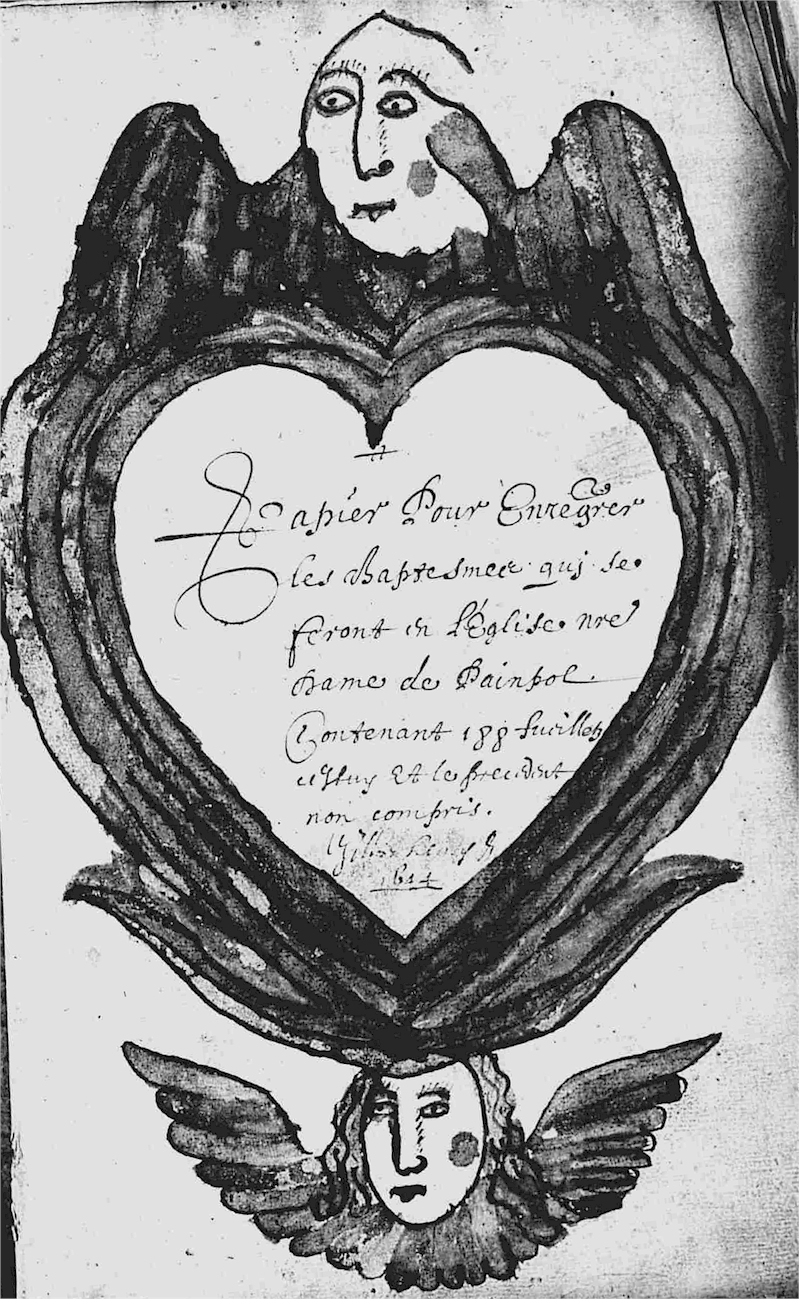 Papier Pour Enregrer
les Baptesmes qui se
feront en l'Eglise nre
Dame de Painpol.
Contenant 188 fueilletz
cestuy Et le precedent
non compris.
1644